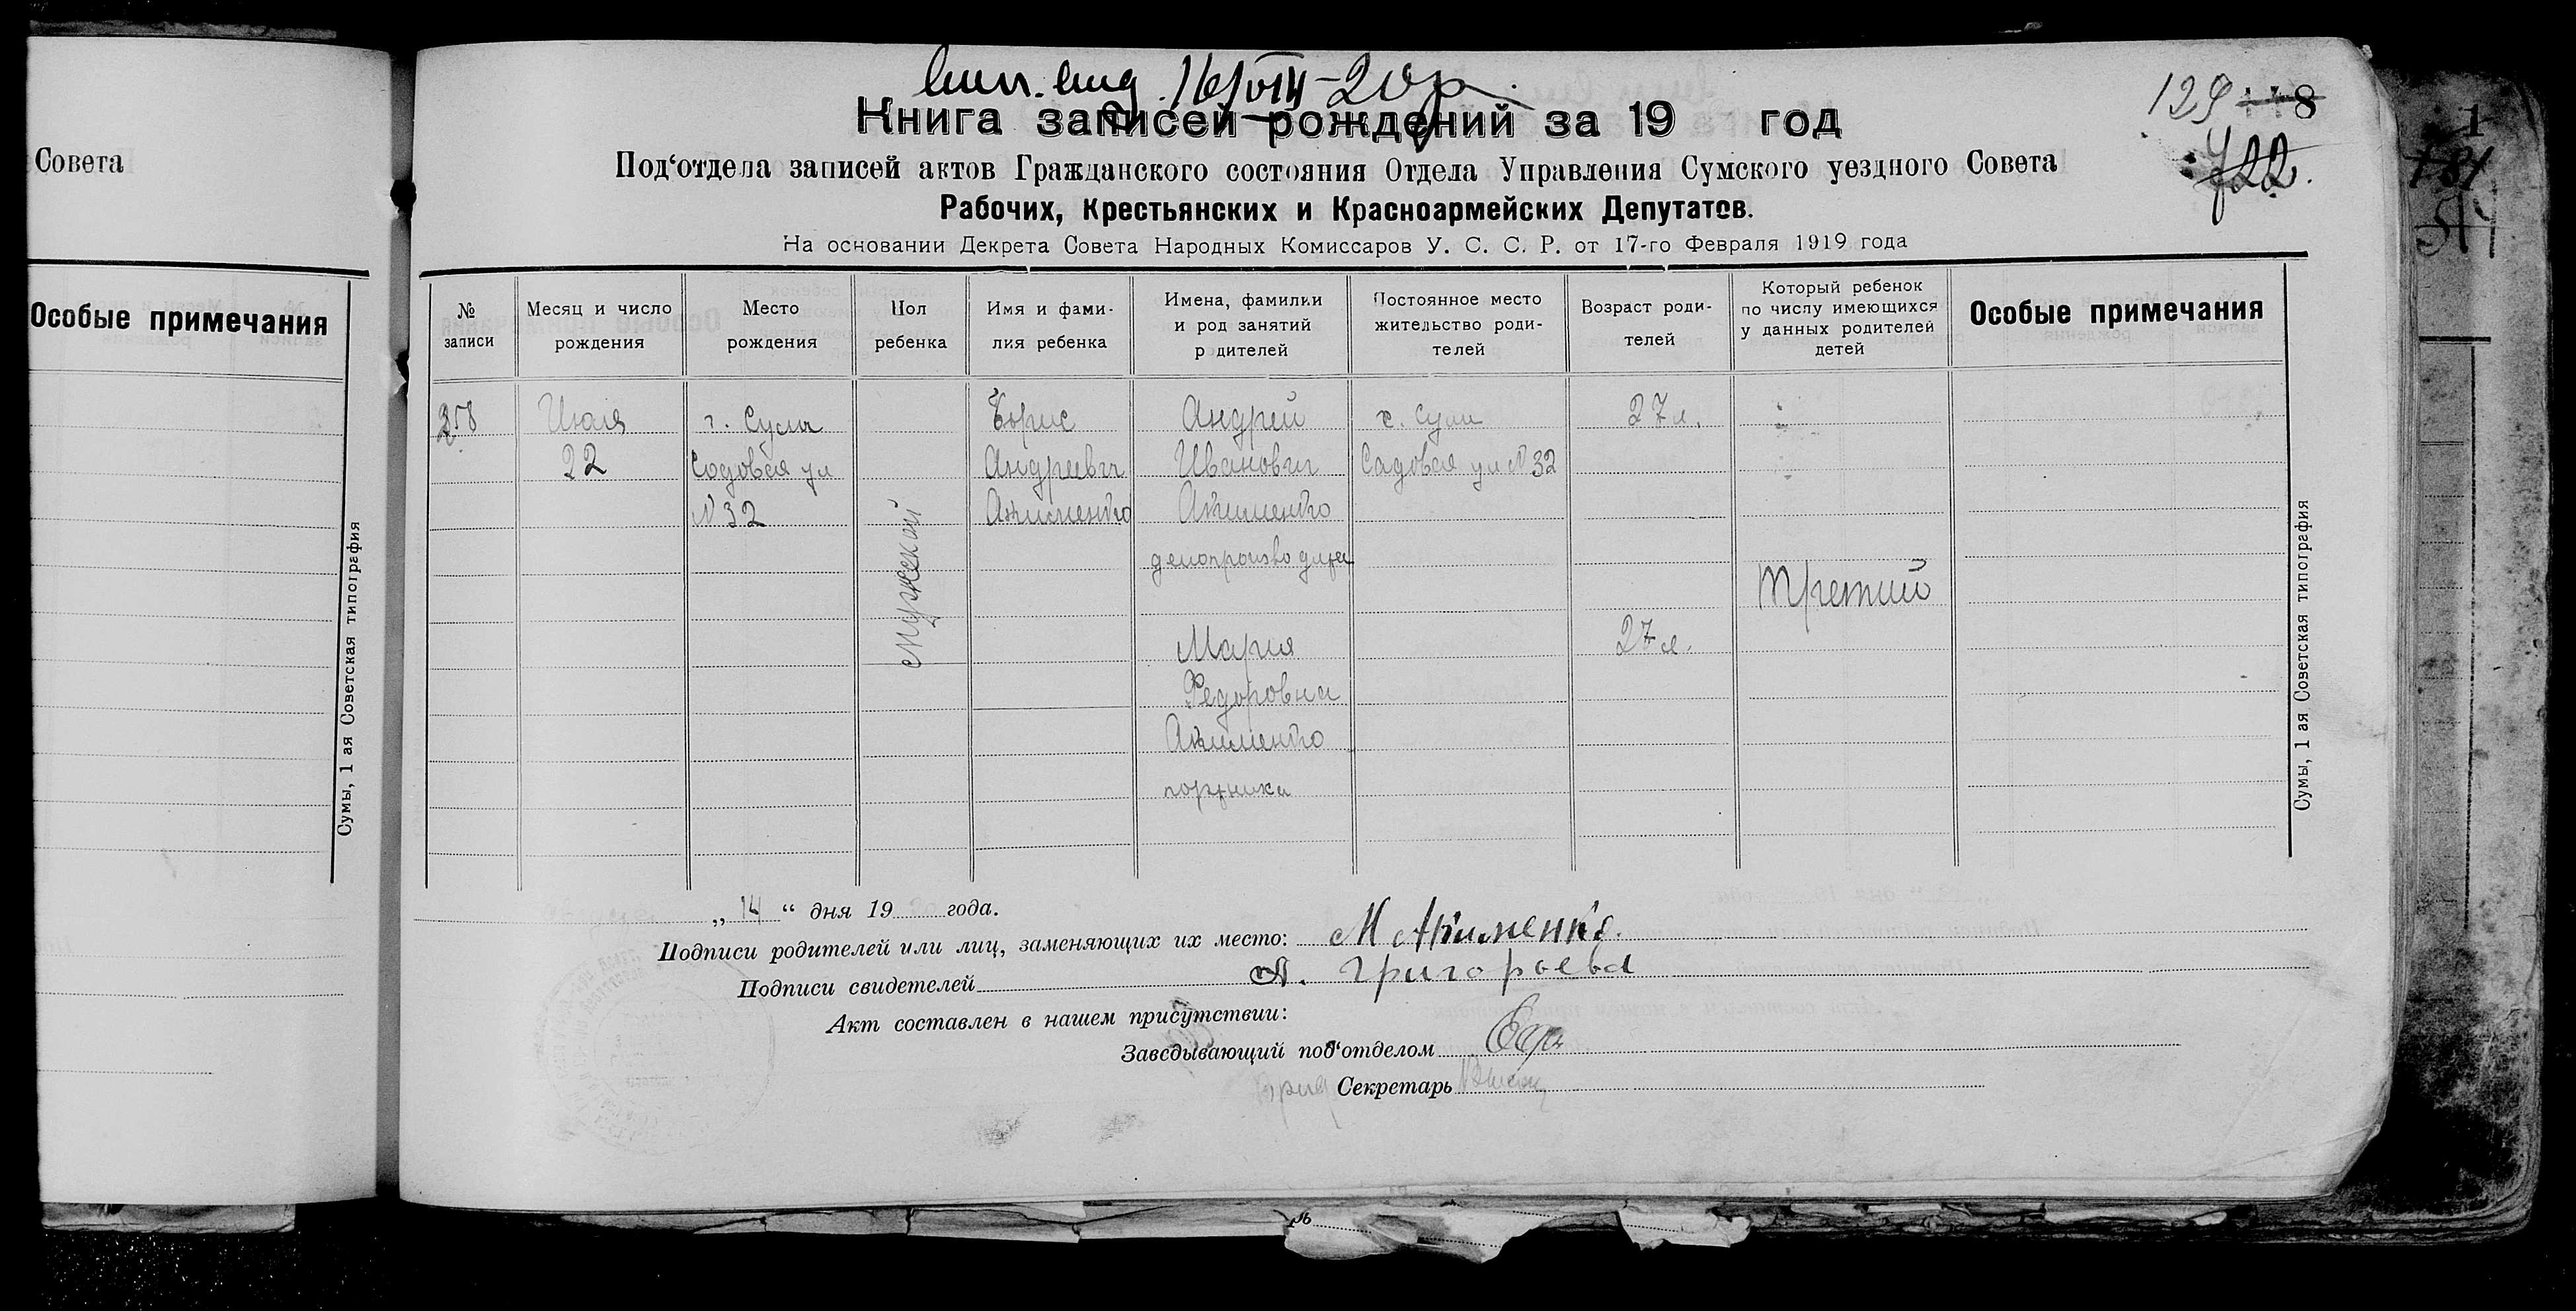 Совета
Особые примечания
Сумы, 1 ая Советская типография
16/VIII-20г.
Книга записей рождений за 19 год
129
8
722.
Под‘отдела записей актов Гражданского состояния Отдела Управления Сумского уездного Совета
Рабочих, Крестьянских и Красноармейских Депутатов.
На основании Декрета Совета Народных Комиссаров У. С. С. Р. от 17-го Февраля 1919 года
№ записи
Месяц и число рождения
Место рождения
Пол ребенка
Имя и фами-
лия ребенка
Имена, фамилии
и род занятий
р дителей
Постоянное место
жительство роди-
телей
Возраст роди-
телей
Который ребенок
по числу имеющихся
у данных родителей
детей
Особые примечания
258
Июля
22
г. Сумы
Садовая ул
№ 32
мужеский
Борис
Андреевич
Акименко
Андрей
Иванович
Акименко
делопроизводитель
Мария
Федоровна
Акименко
портниха
г. Сумы
Садовая ул № 32
27 л.
27 л.
третий
Сумы, 1 ая Советская типография
„ 14 “ дня 19 года.
Подписи родителей или лиц, заменяющих их место: М Акименко.
Подписи свидетелей А. Григорьева
Акт составлен в нашем присутствии:
Заведывающий под‘отделом
Секретарь